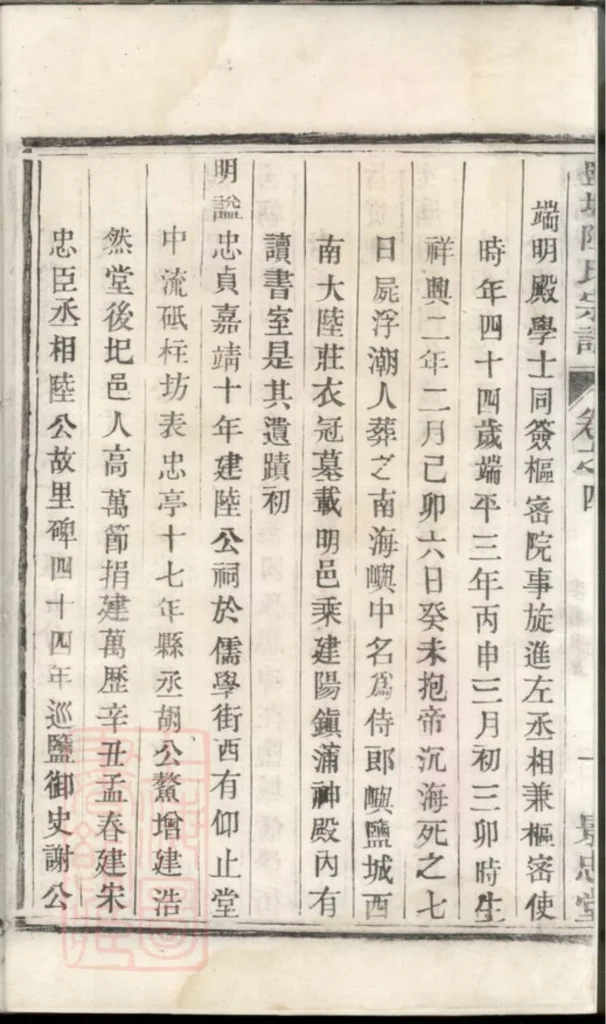 端明殿學士同簽樞密院事旋進左丞相兼樞密使
時年四十四歲端平三年丙申三月初三卯時生
祥興二年二月己卯六日癸未抱帝沉海死之七
日屍浮潮人葬之南海嶼中名爲侍郎嶼鹽城西
南大陸莊衣冠墓載明邑乘建陽鎮蒲神殿內有
讀書室是其遺蹟初
明諡忠貞嘉靖十年建陸公祠於儒學街西有仰止堂
中流砥柱坊表忠亭十七年縣丞胡公鰲增建浩
然堂後圯邑人高萬節捐建萬歷辛丑孟春建宋
忠臣丞相陸公故里碑四十四年巡鹽御史謝公